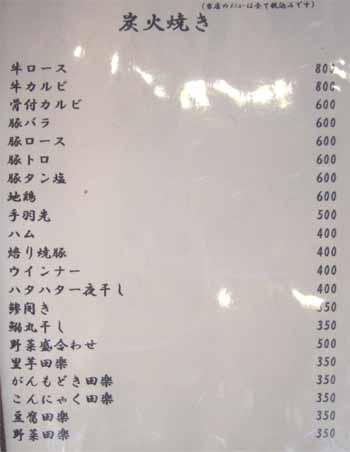 (当店のメニューは全て税込みです)
炭火焼き
牛ロース 800
牛カルビ 800
骨付カルビ 600
豚バラ 600
豚ロース 600
豚トロ 600
豚タン塩 600
地鶏 600
手羽先 500
ハム 400
焙り焼豚 400
ウインナー 400
ハタハタ一夜干し 400
鯵開き 350
鰯丸干し 350
野菜盛合わせ 500
里芋田楽 350
がんもどき田楽 350
こんにゃく田楽 350
豆腐田楽 350
野菜田楽 350